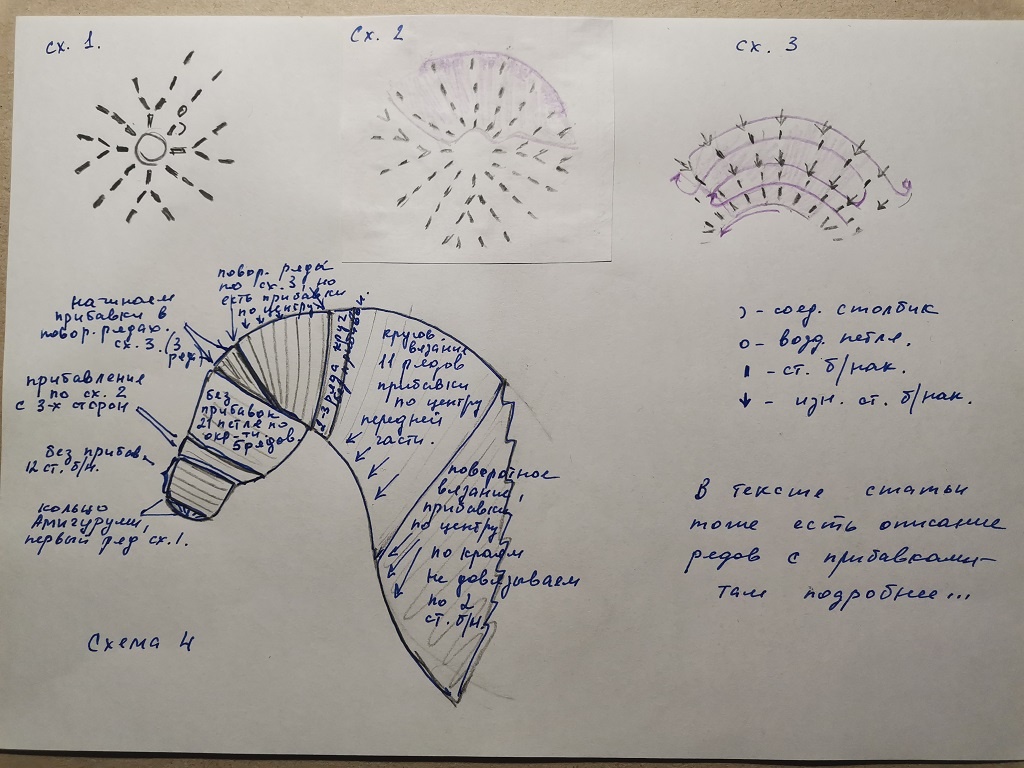 сх. 1.
сх. 2
сх. 3
повор. ряды
по сх. 3, но
есть прибавки
по центру
начинаем
прибавки в
повор. рядах.
сх. 3. (3
ряд
прибавление
по сх. 2
с 3-х сторон
без прибав.
12 ст. б/н.
кольцо
Амигуруми,
первый ряд сх. 1.
без
прибавок
21 петле по
окр-ти
5 рядов.
2-3 ряда круг
кругов.
вязание
11 рядов
прибавки
по центру
передней
части.
поворотное
вязание,
прибавки
по центру
по краям
не довязываем
по 2
ст. б/н.
Схема 4
- соед. столбик
о - возд. петле.
- ст. б/нак.
- изн. ст. б/нак.
В тексте статьи
тоже есть описание
рядов с прибавками-
там подробнее...